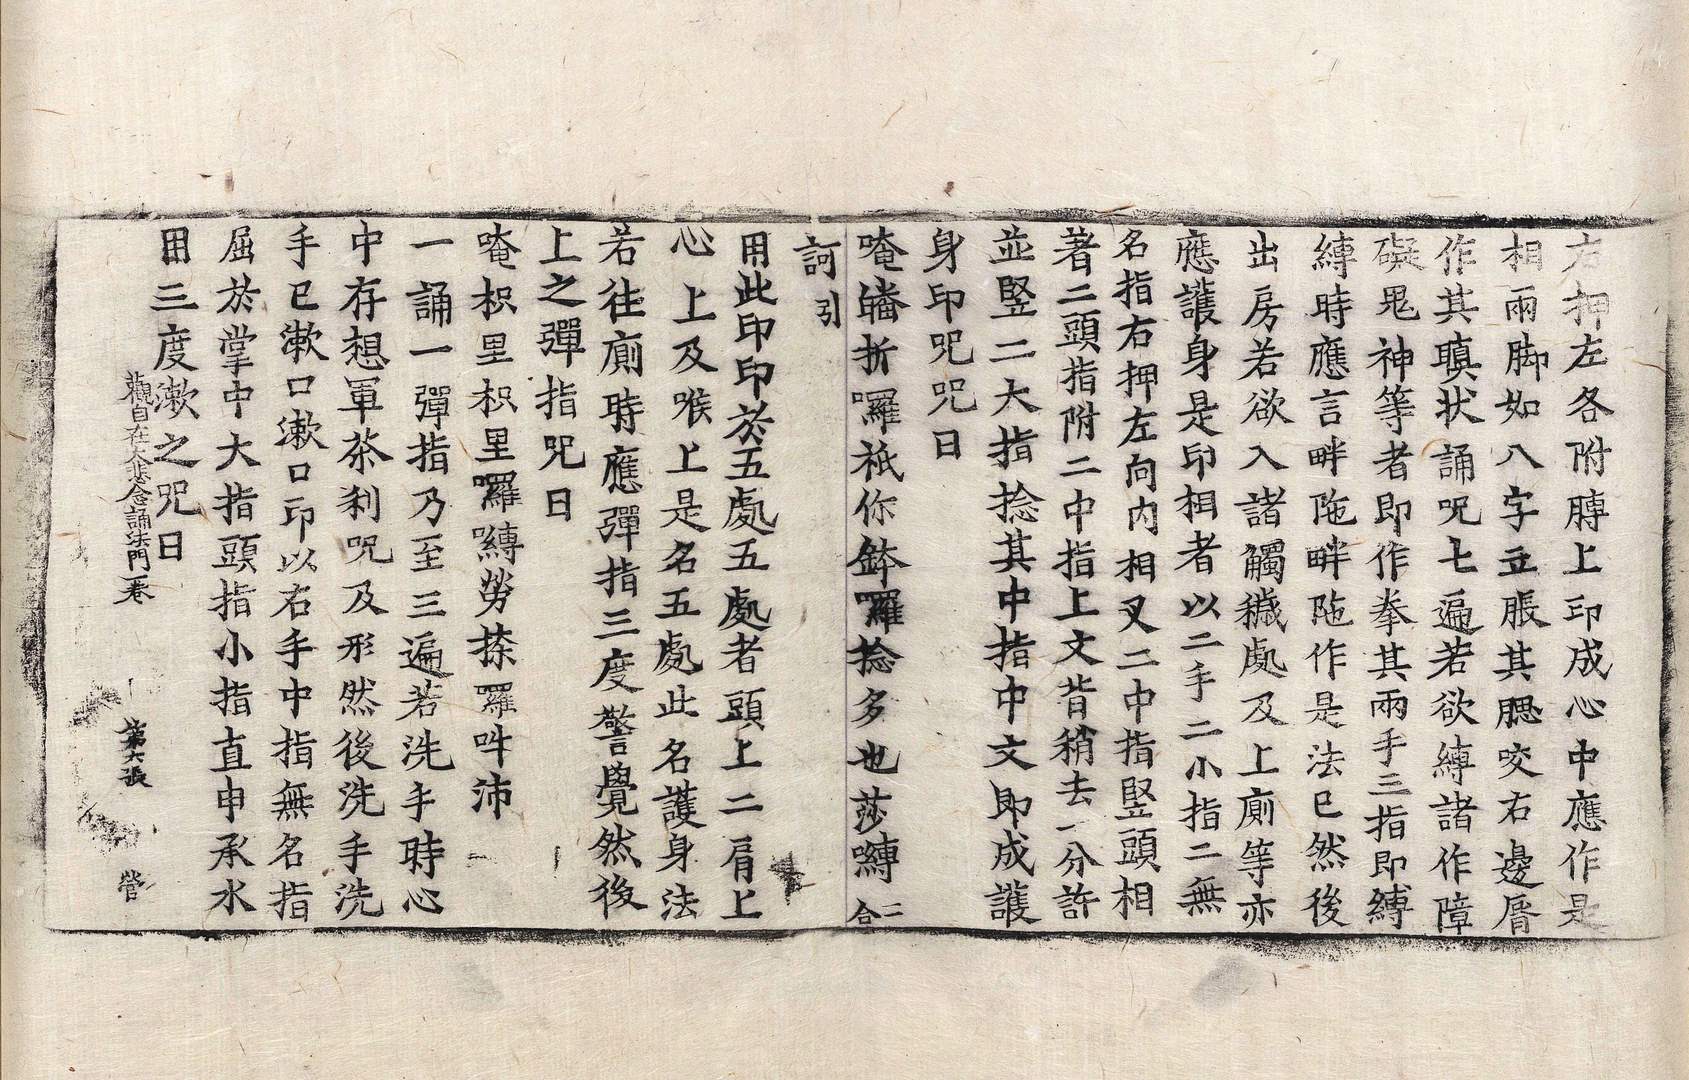 右押左各附膊上印成心中應作是
相兩脚如八字立脹其腮咬右邊脣
作其瞋狀誦呪七遍若欲縛諸作障
礙鬼神等者即作拳其兩手三指即縛
縛時應言畔陁畔陁作是法已然後
出房若欲入諸觸穢處及上廁等亦
應護身是印相者以二手二小指二無
名指右押左向内相叉二中指竪頭相
著二頭指附二中指上文背稍去一分許
並竪二大指捻其中指中文即成護
身印呪呪曰
唵皤折囉祇你鉢囉捻多也莎嚩二合
訶引
用此印印於五處五處者頭上二肩上
心上及喉上是名五處此名護身法
若往廁時應彈指三度警覺然後
上之彈指呪曰
唵枳里枳里囉嚩勞捺囉吽沛
一誦一彈指乃至三遍若洗手時心
中存想軍茶利呪及形然後洗手洗
手已漱口漱口印以右手中指無名指
屈於掌中大指頭指小指直申承水
用三度漱之呪曰
觀自在大悲念誦法門一卷 第六張 營